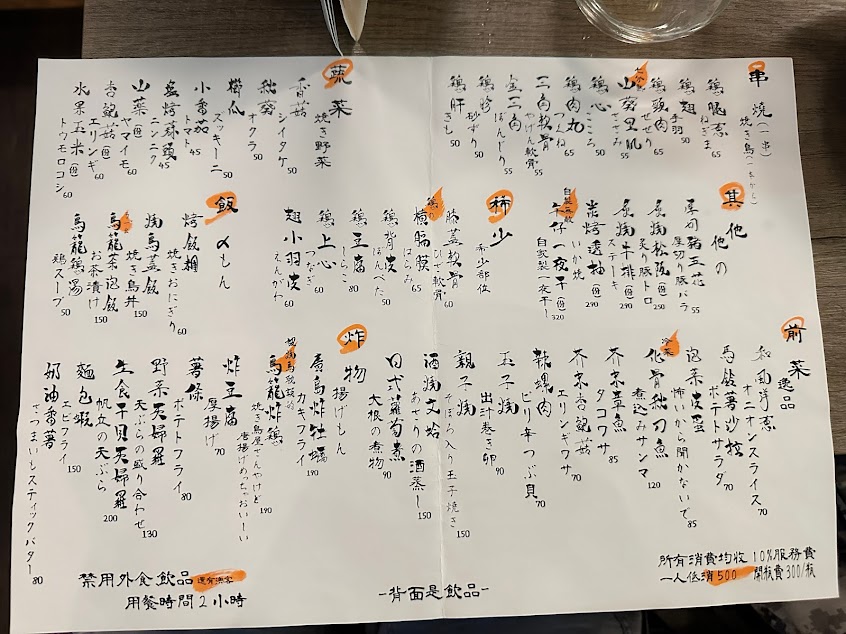 串燒(一串)
焼き鳥(一本から)
鶏腿蔥
ねぎま 65
鶏翅
手羽 50
鶏頸肉
せせり 65
山葵里肌
ささみ 55
鶏心
こころ 50
鶏肉丸
つくね 65
三角軟骨
やげん軟骨 55
金三角
ぼんじり 55
鶏胗
砂ずり 50
鶏肝
きも 50
蔬菜
焼き野菜
香菇
シイタケ 50
秋葵
オクラ 50
櫛瓜
ズッキーニ 50
小番茄
トマト 45
鹽烤蒜頭
ニンニク 45
山藥(份)
ヤマイモ 60
杏鮑菇(份)
エリンギ 60
水果玉米(份)
トウモロコシ 60
其他
他の
厚切豬五花
厚切り豚バラ 55
炙燒松阪(份)
炙り豚トロ 250
炙燒牛排(份)
ステーキ 290
炭烤透抽(份)
いか焼 290
自製無敵
午仔一夜干(份)
自家製一夜干し 320
稀少
希少部位
膝蓋軟骨
ひざ軟骨 60
鶏の
橫膈膜
はらみ 65
鶏背皮
ぼんぺた 50
鶏豆腐
しらこ 80
鶏上心
つなぎ 60
翅小羽皮
えんがわ 60
飯
〆もん
烤飯糰
焼きおにぎり 60
燒鳥蓋飯
焼き鳥丼 150
烏龍茶泡飯
お茶漬け 150
烏龍鶏湯
鶏スープ 50
前菜
逸品
和風洋蔥
オニオンスライス 70
馬鈴薯沙拉
ポテトサラダ 70
泡菜皮蛋
怖いから聞かないで 85
冷菜
化骨秋刀魚
煮込みサンマ 120
芥末章魚
タコワサ 85
芥末杏鮑菇
エリンギワサ 70
辣螺肉
ピリ辛つぶ貝 70
玉子燒
出汁巻き卵 90
親子燒
そぼろ入り玉子焼き 150
酒燒文蛤
あさりの酒蒸し 150
日式蘿蔔煮
大根の煮物 90
炸物
揚げもん
廣島炸牡蠣
カキフライ 190
烏龍炸鶏
焼き鳥屋さんやけど
唐揚げめっちゃおいしい 190
炸豆腐
厚揚げ 70
薯條
ポテトフライ 80
野菜天婦羅
天ぷらの盛り合わせ 130
生食干貝天婦羅
帆立の天ぷら 200
麵包蝦
エビフライ 150
奶油番薯
さつまいもスティックバター 80
所有消費均收10%服務費
一人低消500 開瓶費300/瓶
-背面是飲品-
禁用外食飲品
用餐時間2小時